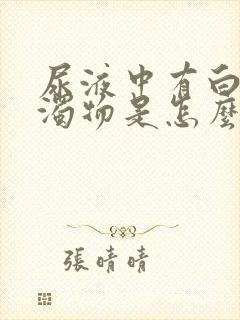 尿液中有白
濁物是怎麼
張晴晴